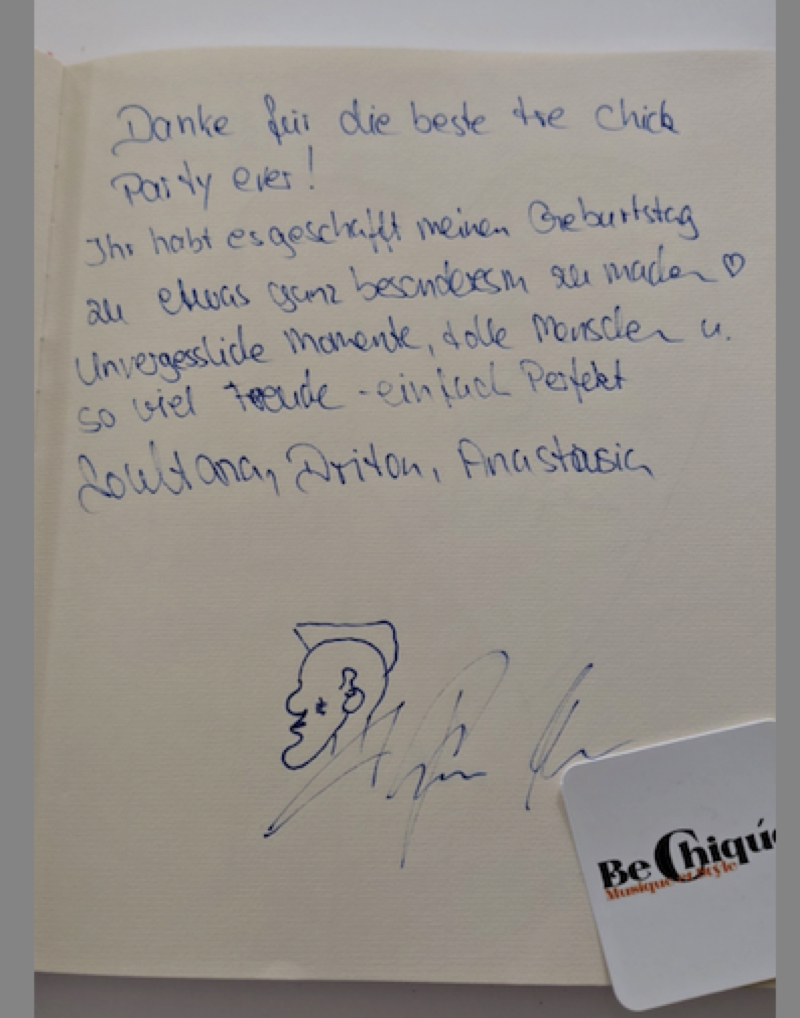 Danke für die beste tre Chick
Party ever!
Ihr habt es geschafft meinen Geburtstag
zu etwas ganz besonderesm zu machen ♡
Unvergessliche Momente, tolle Menschen u.
so viel Freude - einfach Perfekt
Soultana, Driton, Anastasia
Be Chiqué
Musique et Style